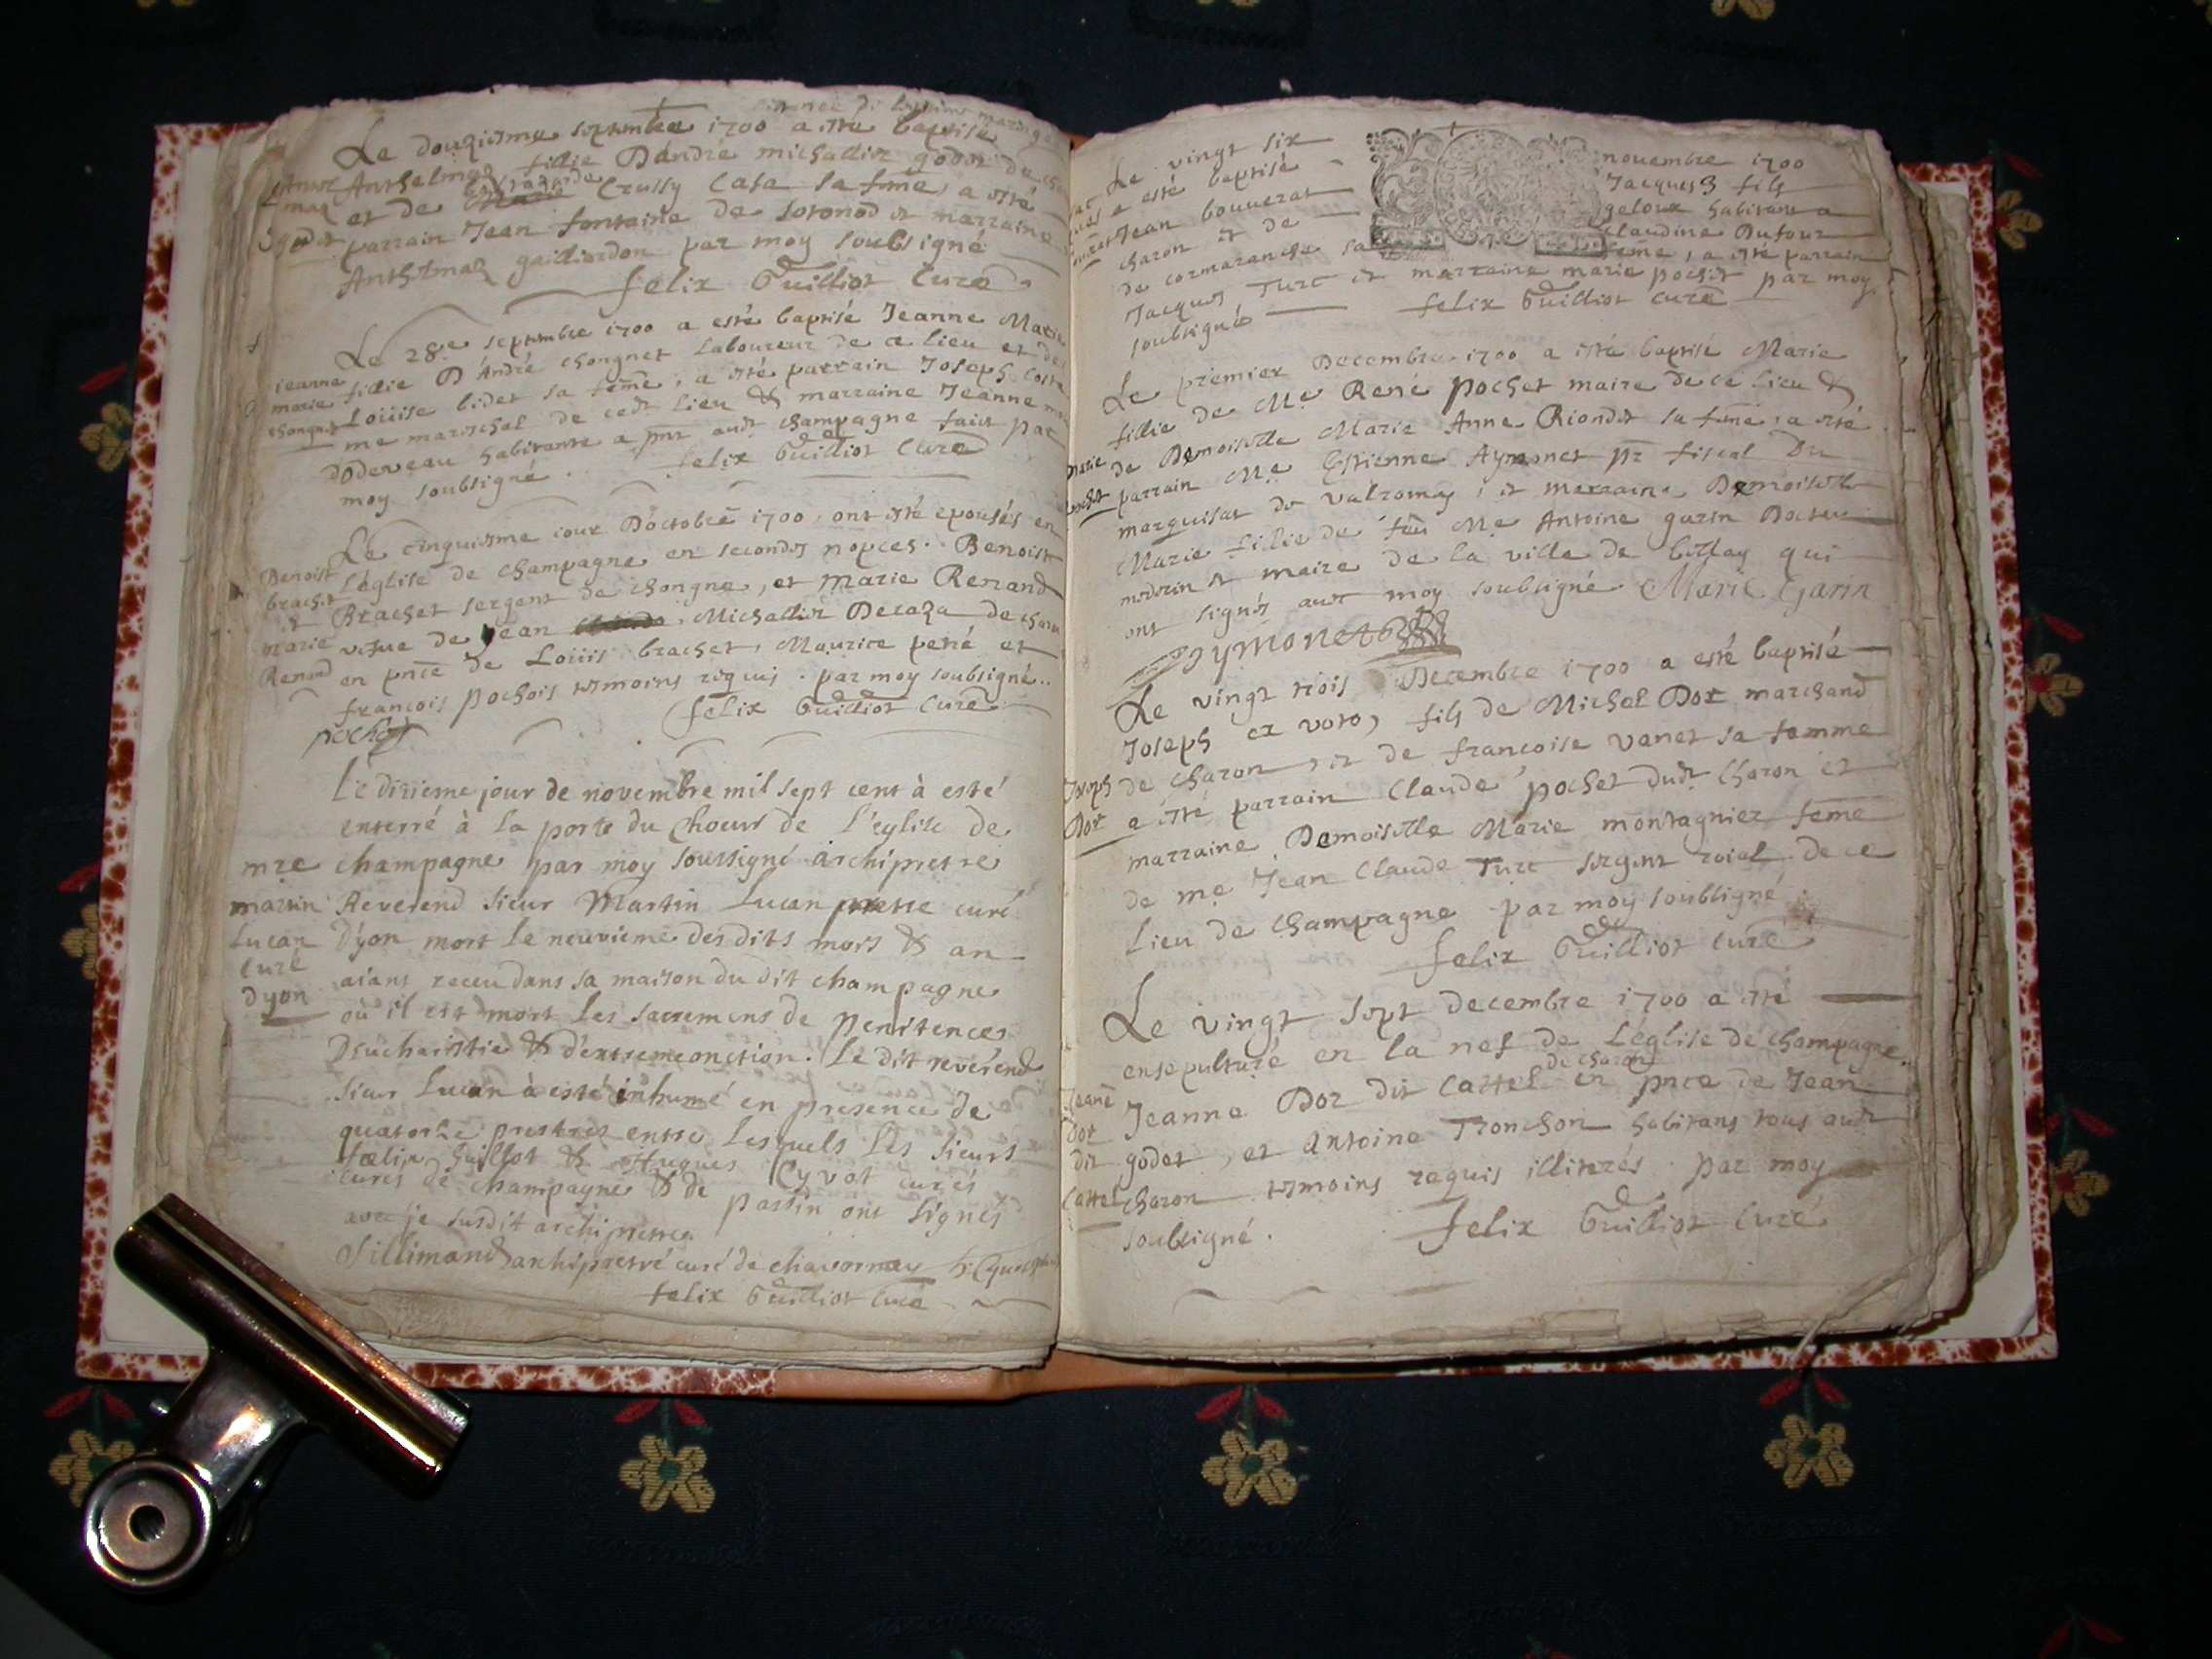 Le douziesme septembre 1700 a esté baptisé
Anthelmaz fillie D'andré michallier godet de
et de Crussy Casa sa feme, a esté
parrain Jean fontaine de sotonod et marraine
Anthelmaz gailliardon par moy soubsigné
felix Guilliot Curé
Le 28e septembre 1700 a esté baptisé Jeanne Marie
jeanne
marie
chongnet
fillie D'André chongnet Laboureur de ce lieu et de
Loüise bidet sa feme, a esté parrain Joseph
me mareschal de cedt lieu & marraine Jeanne
dodeveau habitante a pnt audt champagne faict par
moy soubsigné.
felix Guilliot Curé
Le cinquiesme iour D'octobre 1700, ont esté epousés en
Benoist
brachet
et
marie
Renand
L'église de champagne en secondes nopces. Benoist
Brachet sergent de chongne, et Marie Renand
vefue de Jean Michallier Decaza de
en pnce de Loüis brachet, Maurice pené et
francois pochois tesmoins requis. par moy soubsigné..
felix Guilliot Curé
Le dixieme jour de novembre mil sept cent à esté
enterré à la porte du Choeur de l'eglise de
mre
martin
Lucan
curé
dyon
champagne par moy soussigné archipretre
Reverend sieur Martin Lucan pretre curé
D'yon mort le neuvieme desdits mois & an
aiant receu dans sa maison du dit champagne
où il est mort les sacremens de penitences
D'eucharistie & d'extremeonction. Le dit reverend
sieur Lucan à esté inhumé en presence de
quatorze prestres entre lesquels les sieurs
fœlix Guillot & Hugues Cyvot curés
curés de champagne & de passin ont signés
avec je susdit archipretre
Sillimand archipretré curé de chavornay
felix Guilliot Curé
Le vingt six novembre 1700
a esté baptisé Jacques fils
Jean bouverat geloux habitant a
charon et de claudine Dufour
de cormaranche sa feme, a esté parrain
Jacques Turc et marraine marie pochet par moy
soubsigné felix Guilliot curé
Le premier Decembre 1700 a esté baptisé Marie
marie
pochet
fillie de Me René pochet maire de ce lieu &
de Demoiselle Marie Anne Riondet sa feme, a esté
parrain Me Estienne Aymonet pr fiscal Du
marquisat de valromey, et marraine Demoiselle
Marie fillie de feu Me Antoine garin Docteur
medecin et maire de la ville de bellay qui
ont signés avec moy soubsigné Marie Garin
Aymonet
Le vingt trois Decembre 1700 a esté baptisé
Joseph
Dor
Joseph ex voto, fils de Michel Dor marchand
de charon, et de francoise vanet sa femme
a esté parrain Claude pochet dudt charon et
marraine Demoiselle Marie montagnier feme
de me Jean Claude Turc sergent roial de ce
Lieu de champagne par moy soubsigné
felix Guilliot curé
Le vingt sept decembre 1700 a esté
ensepulturé en la nef de L'église de champagne..
Jeane
dor
dit
Cattel
Jeanne Dor dit Cattel de charon en pnce de Jean
godet, et Antoine Tronchon habitans tous audt
charon tesmoins requis illiterés. par moy
soubsigné.
felix Guilliot Curé